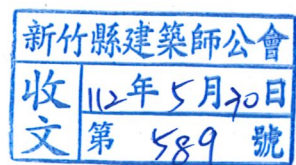 新竹縣建築師公會
收文
112年5月30日
第589號